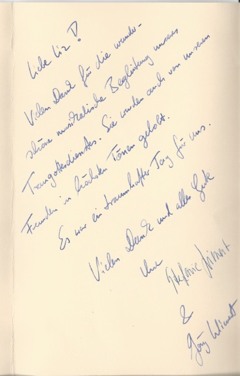 Liebe Liz!
Vielen Dank für die wunder-
schöne musikalische Begleitung unseres
Traugottesdienstes. Sie wurden auch von unseren
Freunden in höchsten Tönen gelobt.
Es war ein traumhafter Tag für uns.
Vielen Dank und alles Gute
Ihre
Stefanie
&
Jörg